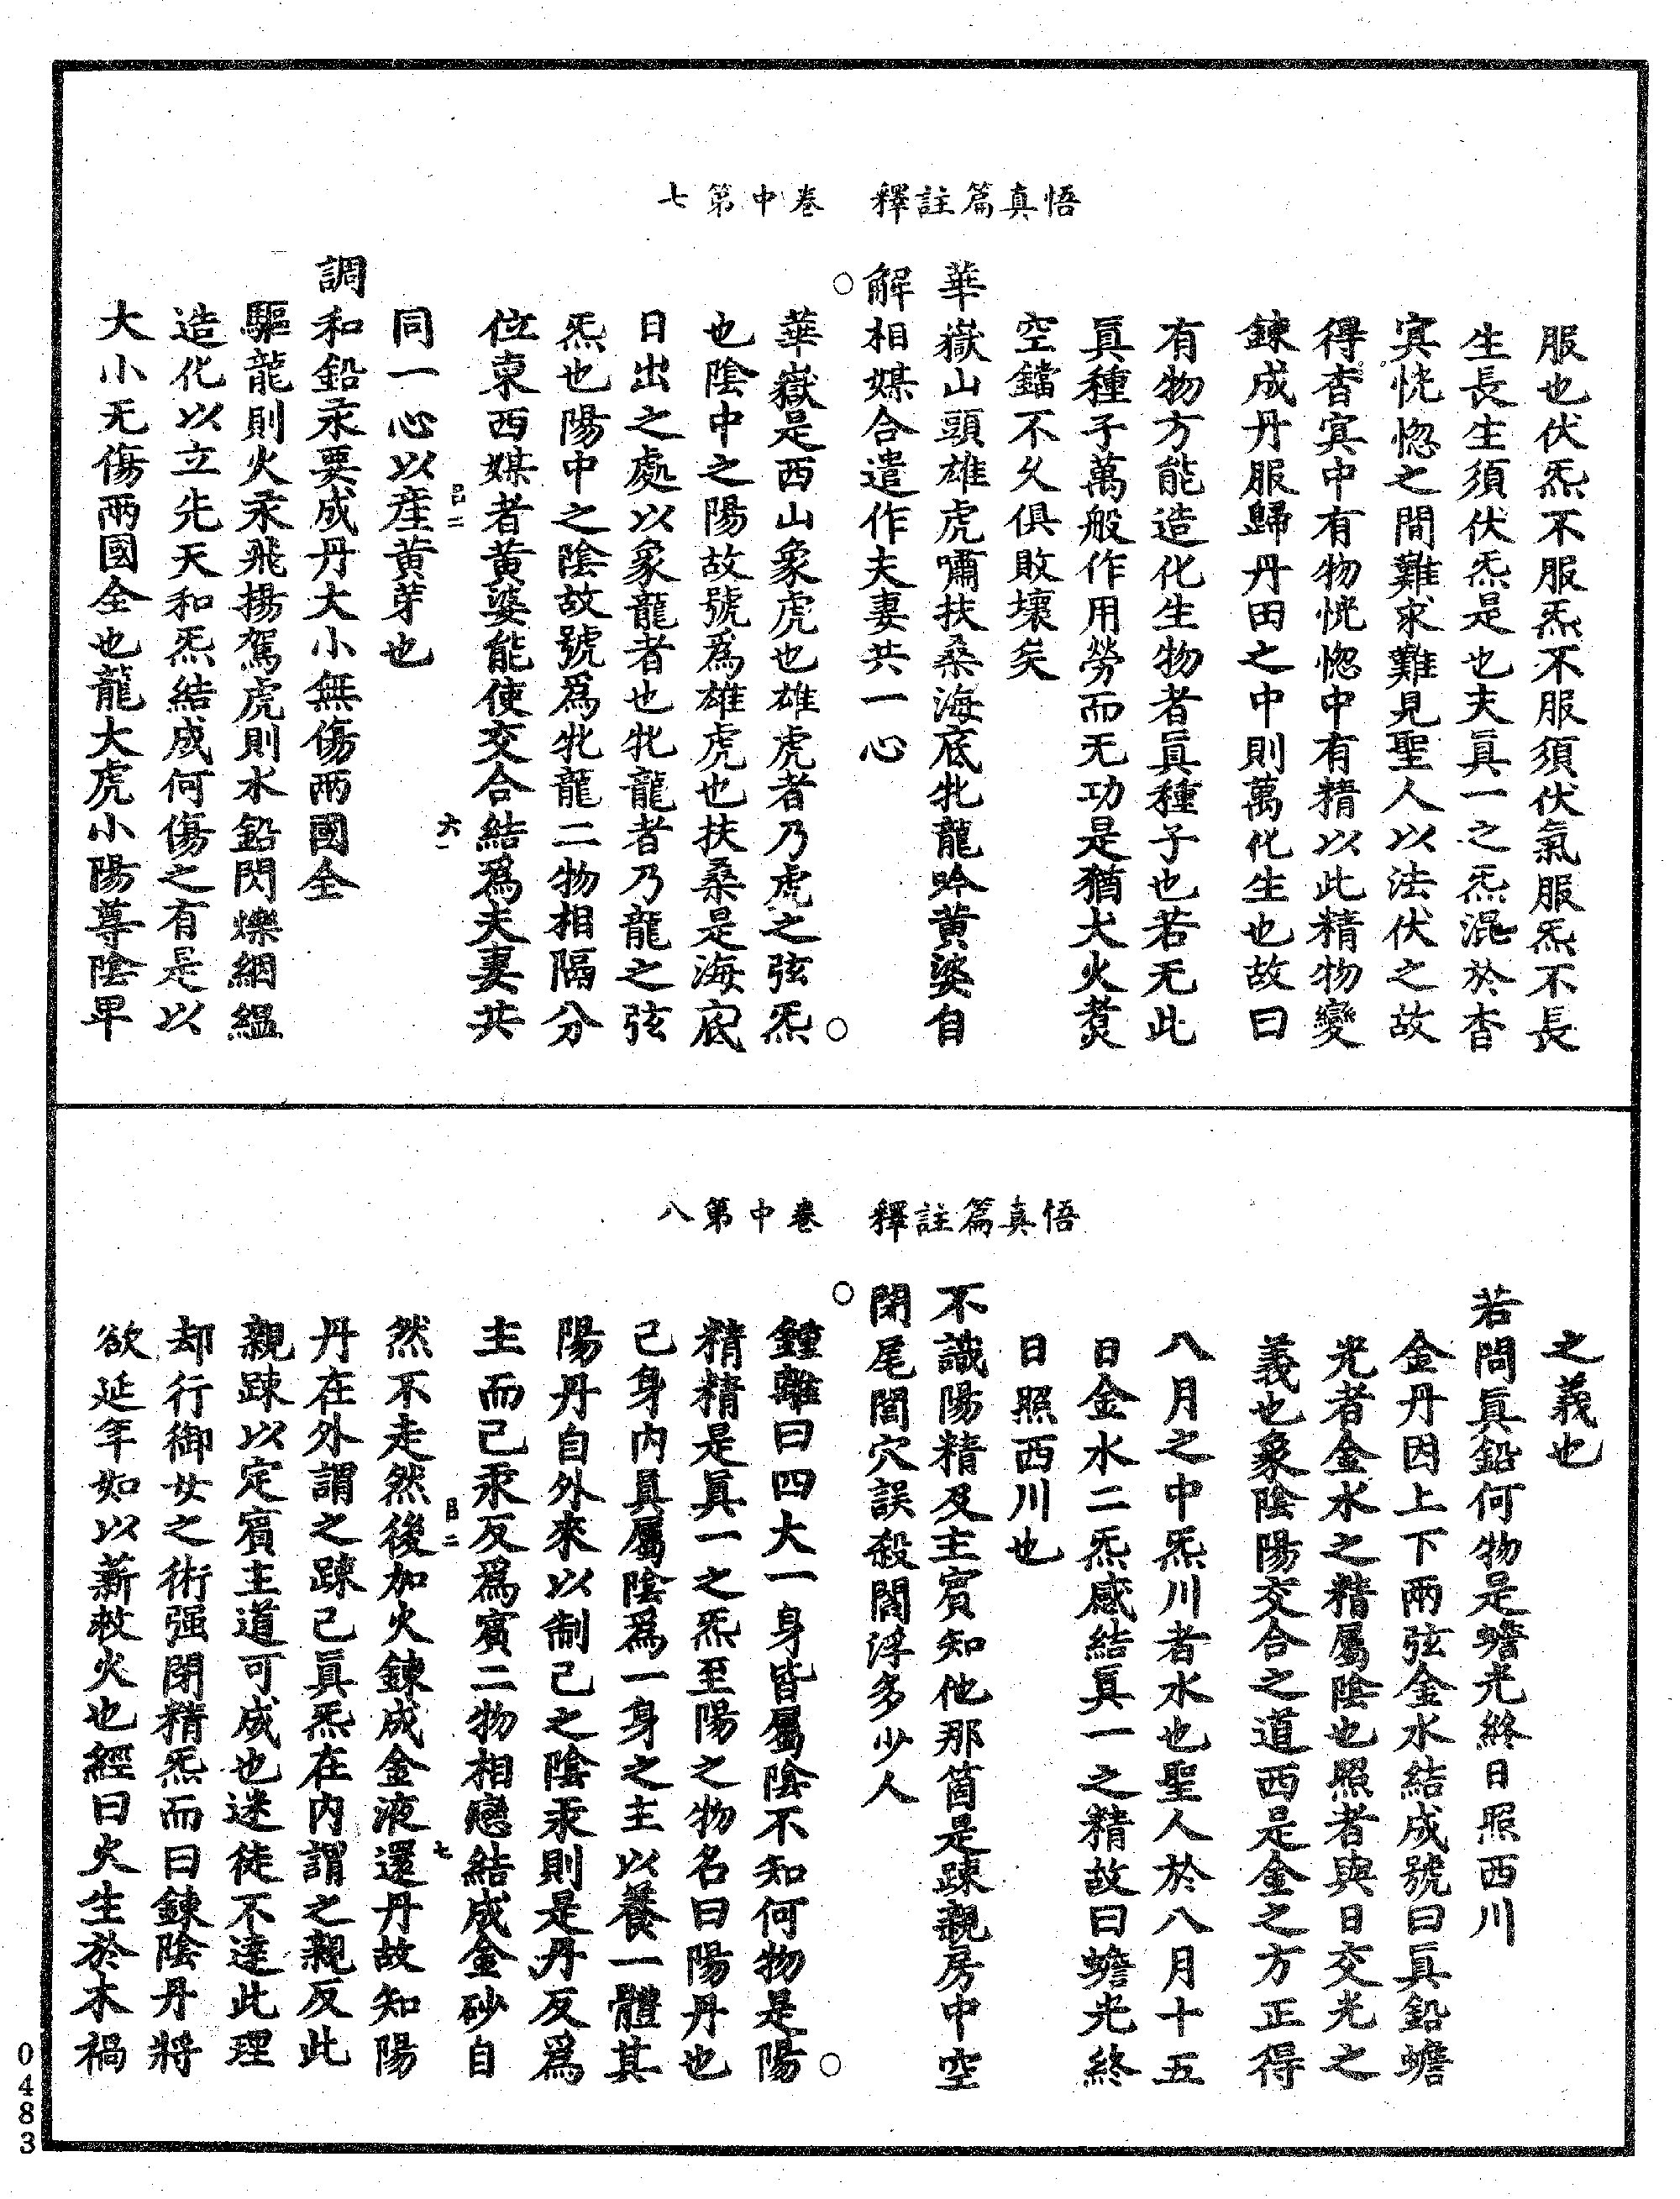 悟真篇註釋　卷中第七
服也伏炁不服炁不服須伏氣服炁不長
生長生須伏炁是也夫真一之炁混於杳
冥恍惚之間難求難見聖人以法伏之故
得杳冥中有物恍惚中有精以此精物變
鍊成丹服歸丹田之中則萬化生也故曰
有物方能造化生物者真種子也若无此
真種子萬般作用勞而无功是猶犬火煑
空鐺不久俱敗壞矣
華嶽山頭雄虎嘯扶桑海底牝龍吟黃婆自
解相媒合遣作夫妻共一心
○
華嶽是西山象虎也雄虎者乃虎之弦炁
○
也陰中之陽故號爲雄虎也扶桑是海底
日出之處以象龍者也牝龍者乃龍之弦
炁也陽中之陰故號爲牝龍二物相隔分
位東西媒者黃婆能使交合結爲夫妻共
六
同一心以産黃芽也
調和鉛汞要成丹大小無傷兩國全
驅龍則火汞飛揚駕虎則水鉛閃爍絪縕
造化以立先天和炁結成何傷之有是以
大小无傷兩國全也龍大虎小陽尊陰卑
悟真篇註釋　卷中第八
之義也
若問真鉛何物是蟾光終日照西川
金丹因上下兩弦金水結成號曰真鉛蟾
光者金水之精屬陰也照者與日交光之
義也象陰陽交合之道西是金之方正得
八月之中炁川者水也聖人於八月十五
日金水二炁感結真一之精故曰蟾光終
日照西川也
不識陽精及主賓知他那箇是踈親房中空
閉尾閭穴誤殺閻浮多少人
○
鍾離曰四大一身皆屬陰不知何物是陽
○
精精是真一之炁至陽之物名曰陽丹也
己身內真屬陰爲一身之主以養一體其
陽丹自外來以制己之陰汞則是丹反爲
主而己汞反爲賓二物相戀結成金砂自
七
然不走然後加火鍊成金液還丹故知陽
丹在外謂之踈己真炁在內謂之親反此
親踈以定賓主道可成也迷徒不達此理
却行御女之術强閉精炁而曰鍊陰丹將
欲延年如以薪救火也經曰火生於木禍
0483